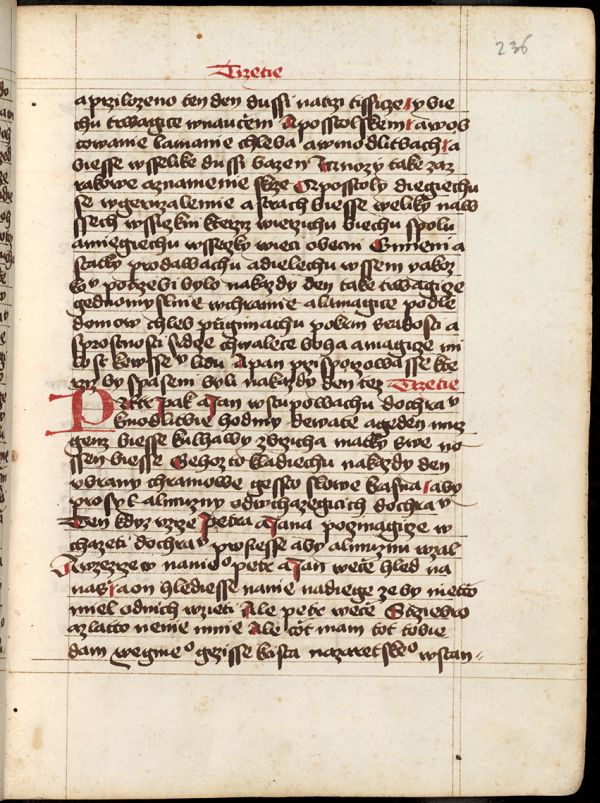 236
Trzetie
a przilozeno ten den dussi na trzi tissicze y bie
chu trwagice w nauczeni Aposstolskem a w ob
czowanie lamanie chleba a w modlitbach a
biesse wsselike dussi bazen J mnozy take zaz
rakowe a znamenie skrze Apostoly diegiechu
se w geruzalemie a strach biesse weliky na w
ssech wssiczkni kterziz wierzichu biechu spolu
a miegiechu wsseczky wieci obecni Gmieni a
statky prodawachu a dielechu wssem yakoz
ko y potrzebi bylo na kazdy den take trwagicze
gednomyslnie w chramie a lamagice podle
domow chleb przigimachu pokrm s radosti a
sprostnosti srdce chwalece boha a magice mi
lost ke wsse v lidu A pan przisporzowasse kte
rziz by spaseni byli na kazdy den tez Trzetie
Petr pak a Jan wstupowachu do chra v
k modlitbie hodiny dewate a geden muz
genz biesse kulhawy z brzicha matky swe no
ssen biesse Gehoz to kladiechu na kazdy den
v brany chramowe gessto slowe krasna aby
prosyl almuzny od wchazegicich do chra v
Ten kdyz vzrze Petra a Jana poczinagicze w
chazeti do chra v prosiesse aby almuznu wzal
J wzezrzew na nieo petr a Jan wece hled na
nas J a on hlediesse na nie nadiege ze by nieczto
miel od nich wzieti Ale petr wece Strziebro
a zlatto nenie v mnie Ale czot mam tot tobie
dam We gmeo gezisse krista nazaretskeo wstan=